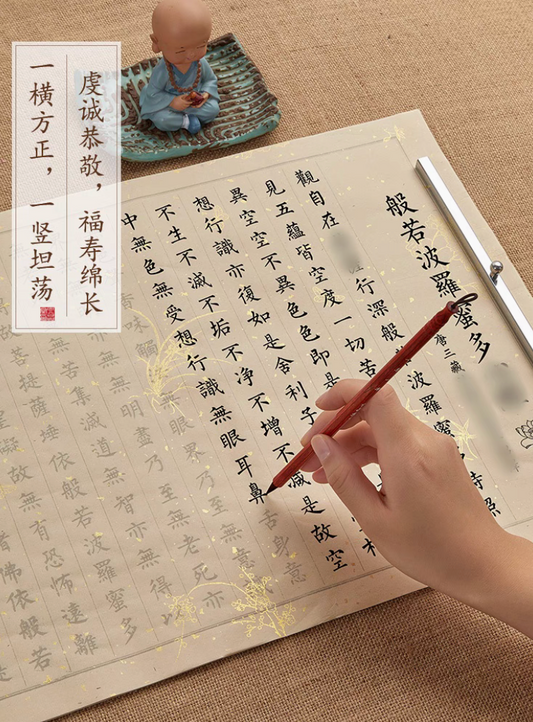 虔诚恭敬，福寿绵长
一横方正，一竖坦荡
般若波羅蜜多
唐三藏
觀自在行深般波羅蜜時照
見五蘊皆空度一切苦
異空空不異色色即是
想行識亦復如是舍利子
不生不滅不垢不净不增不減是故空
中無色無受想行識無眼耳鼻舌身意
味觸眼界乃至無意
無明盡乃至無老死亦
苦集滅道無智亦無得
菩提薩埵依般若波羅蜜多
礙故無有恐怖遠離
佛依般若